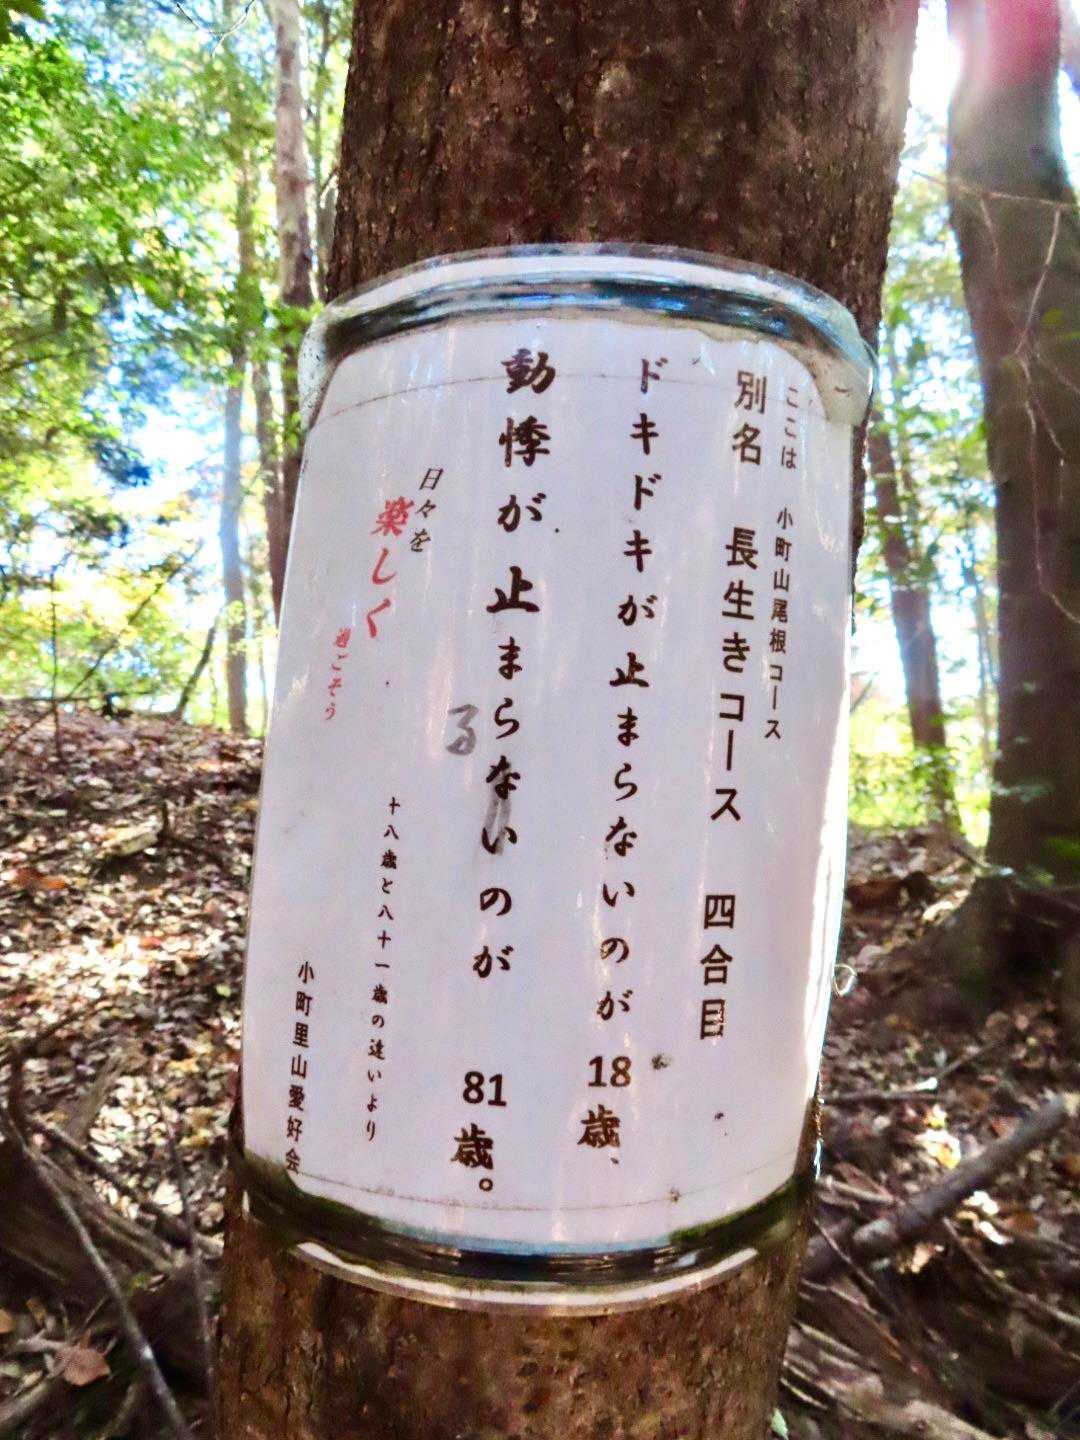 ここは　小町山尾根コース
別名　長生きコース　四合目
ドキドキが止まらないのが18歳、
動悸が止まらないのが　81歳。
る
日々を
楽しく
過ごそう
十八歳と八十一歳の違いより
小町里山愛好会